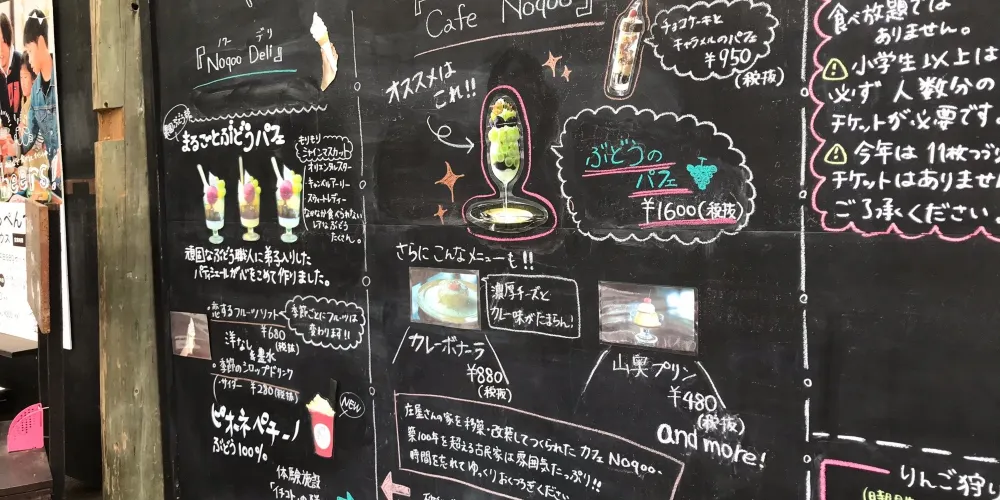 『Noqoo Deli』
ノクー デリ
まるごとぶどうパフェ
もりもり
シャインマスカット
オリエンタルスター
キャンベルアーリー
スウィートレディー
なかなか食べられない
レアなぶどう
たくさん。
頑固なぶどう職人に弟子入りした
パティシエールが心をこめて作りました。
・恋するフルーツソフト
¥680
(税抜)
洋なし
&豊水
季節ごとにフルーツは
変わります!!
・季節のシロップドリンク
・サイダー ¥280(税抜)
NEW
ピオーネペチーノ
ぶどう100%
体験施設
『Cafe Noqoo』
チョコケーキと
キャラメルのパフェ
¥950
(税抜)
オススメは
これ!!
ぶどうの
パフェ
¥1600(税抜)
さらにこんなメニューも!!
濃厚チーズと
カレー味がたまらん!
カレーボナーラ
¥880
(税抜)
山奥プリン
¥480
(税抜)
and more!
庄屋さんの家を移築・改装してつくられたカフェNoqoo、
築100年を超える古民家は雰囲気たっぷり!!
時間を忘れてゆっくりおくつろぎください
食べ放題では
ありません。
小学生以上は
必ず人数分の
チケットが必要です。
今年は11枚つづり
チケットはありません
ご了承ください
りんご狩り